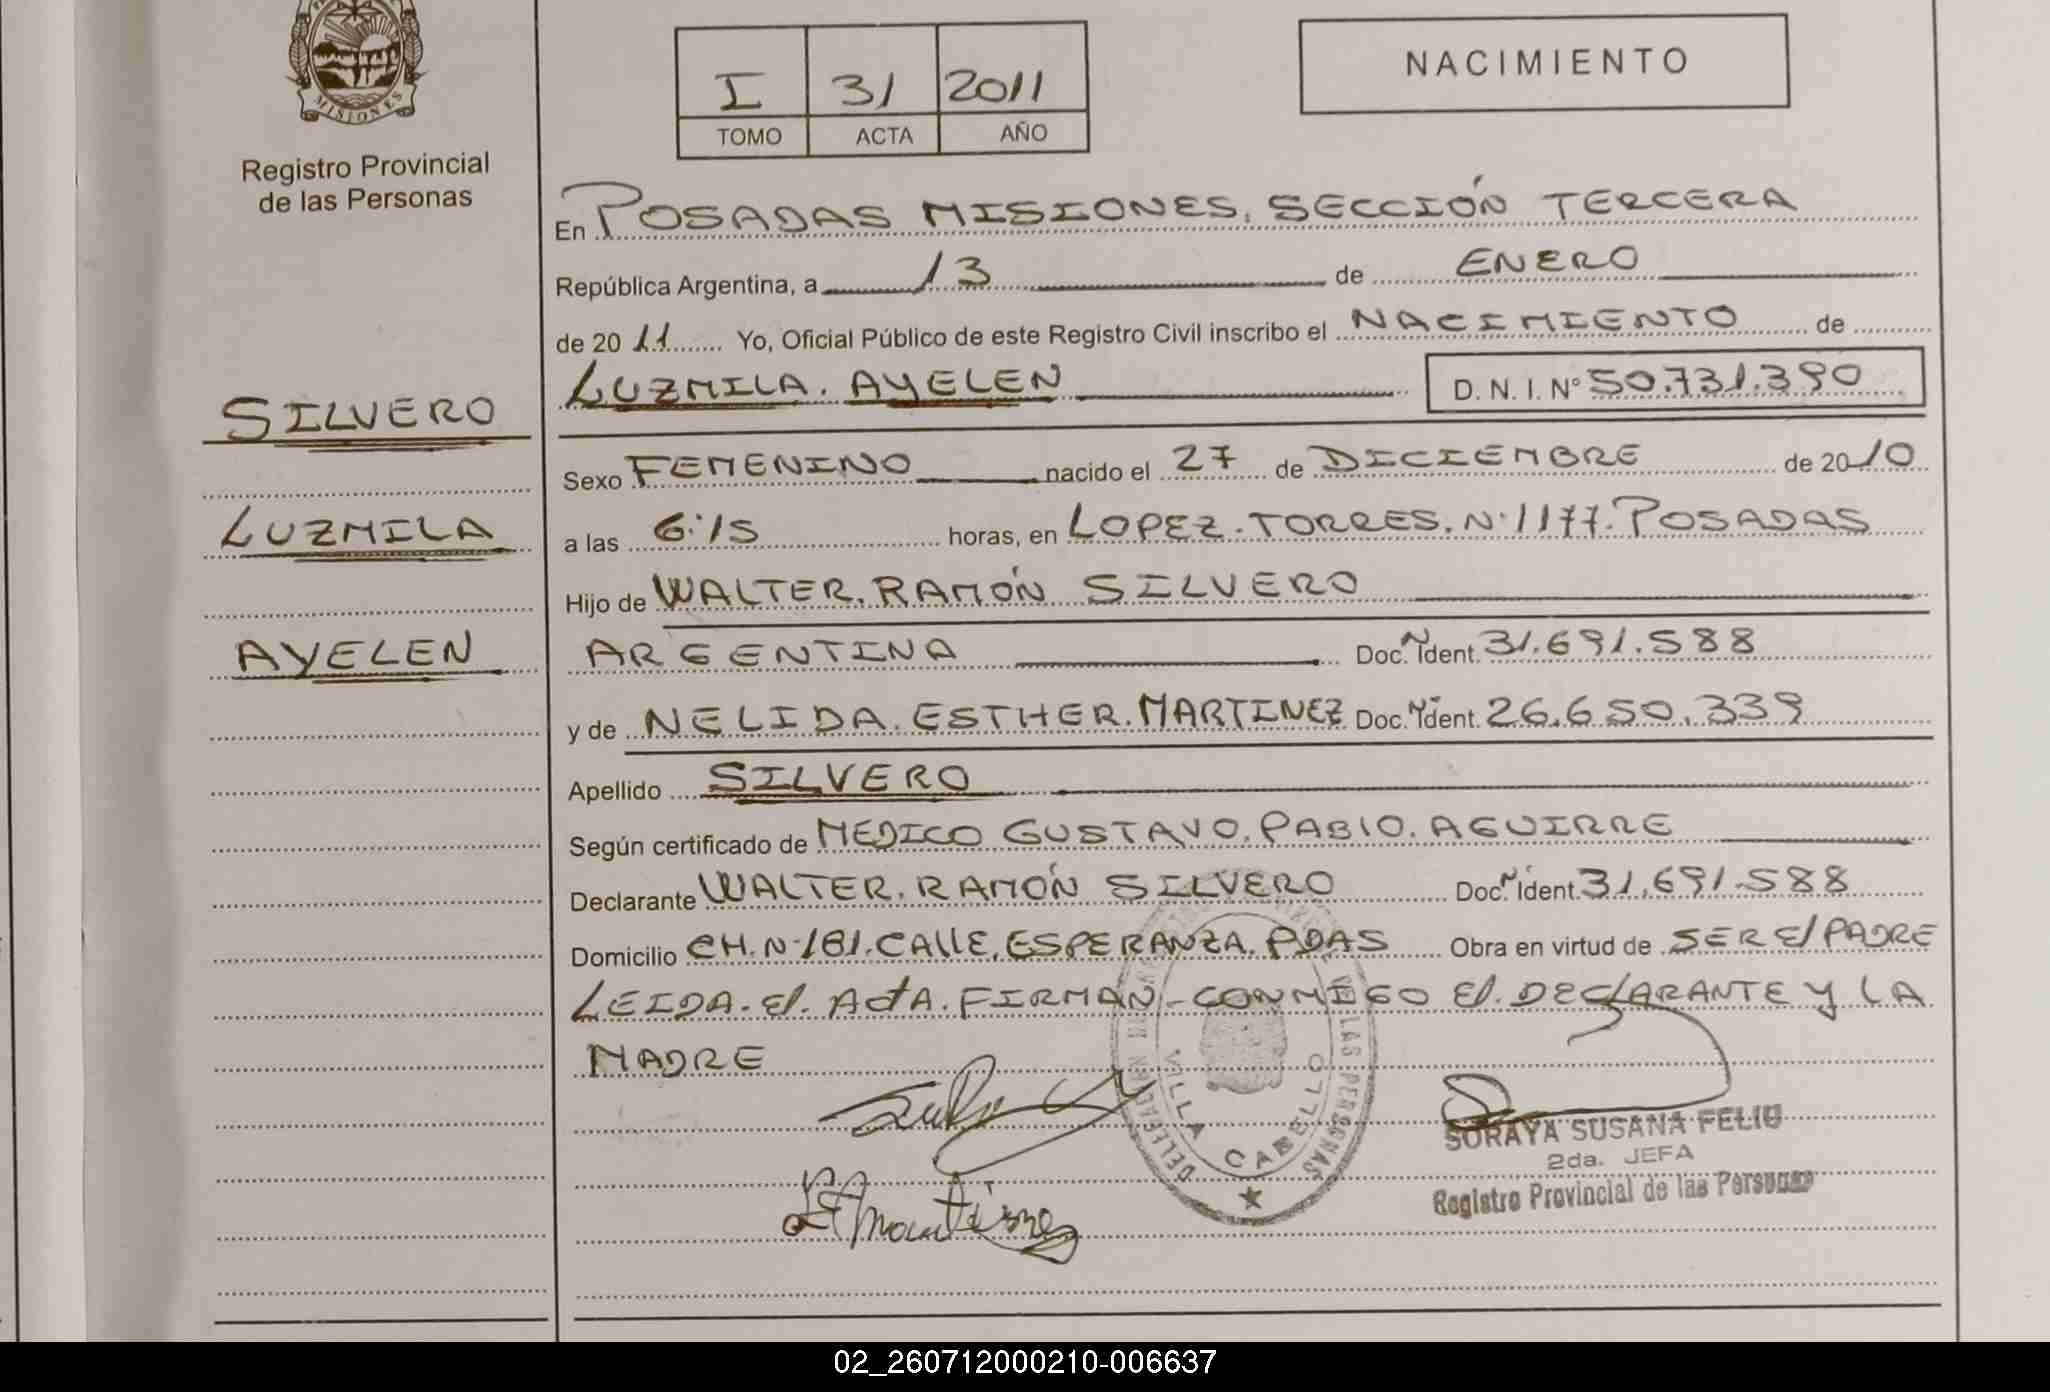 MISIONES
Registro Provincial
de las Personas
SILVERO
LUZMILA
AYELEN
I 31 2011
TOMO ACTA AÑO
NACIMIENTO
En POSADAS MISIONES. SECCIÓN TERCERA
República Argentina, a 13 de ENERO
de 2011 Yo, Oficial Público de este Registro Civil inscribo el NACIMIENTO de
LUZMILA. AYELEN D. N. I. Nº 50.731.390
Sexo FEMENINO nacido el 27 de DICIEMBRE de 2010
a las 6:15 horas, en LOPEZ. TORRES. Nº 1177. POSADAS
Hijo de WALTER. RAMÓN SILVERO
ARGENTINA Doc. Ident. 31.691.588
y de NELIDA. ESTHER. MARTINEZ Doc. Ident. 26.650.339
Apellido SILVERO
Según certificado de MEDICO GUSTAVO. PABlO. AGUIRRE
Declarante WALTER. RAMÓN SILVERO Doc. Ident. 31.691.588
Domicilio CH. Nº 181. CAllE. ESPERANZA. PDAS Obra en virtud de SER El PADRE
LEIDA. El. ActA. FIRMAN - CONMIGO El. DEClARANTE Y LA
MADRE
VILLA CABELLO
LAS PERSONAS
SORAYA SUSANA FELIU
2da. JEFA
Registro Provincial de las Personas
02_260712000210-006637